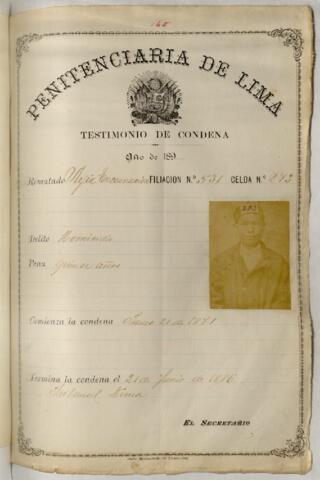 165
PENITENCIARIA DE LIMA
TESTIMONIO DE CONDENA
Año de 189
Rematado FILIACION N.º 531 CELDA N.º 243
243
Delito Homicidio
Pena quince años
Comienza la condena Junio 21 de 1881
Termina la condena el 21 de Junio de 1896
Tribunal Lima
EL SECRETARIO